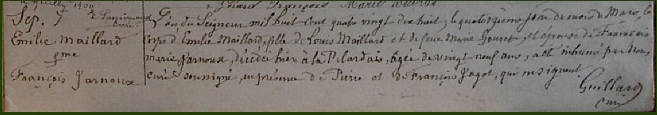 Sep.
Emilie Maillard
fme
François Jarnoux
L'an du Seigneur mil huit cent quatre vingt dix huit, le quatorzième jour du mois de Mars, le
corps d'Emilie Maillard, fille de Louis Maillard et de feue Marie Gouret, et épouse de François
marie Jarnoux, décédée hier à la Pilardais, agée de vingt neuf ans, a été inhumé par Nous,
curé soussigné, en présence de Pierre et de François Jagot, qui ne signent.
Guillard
curé